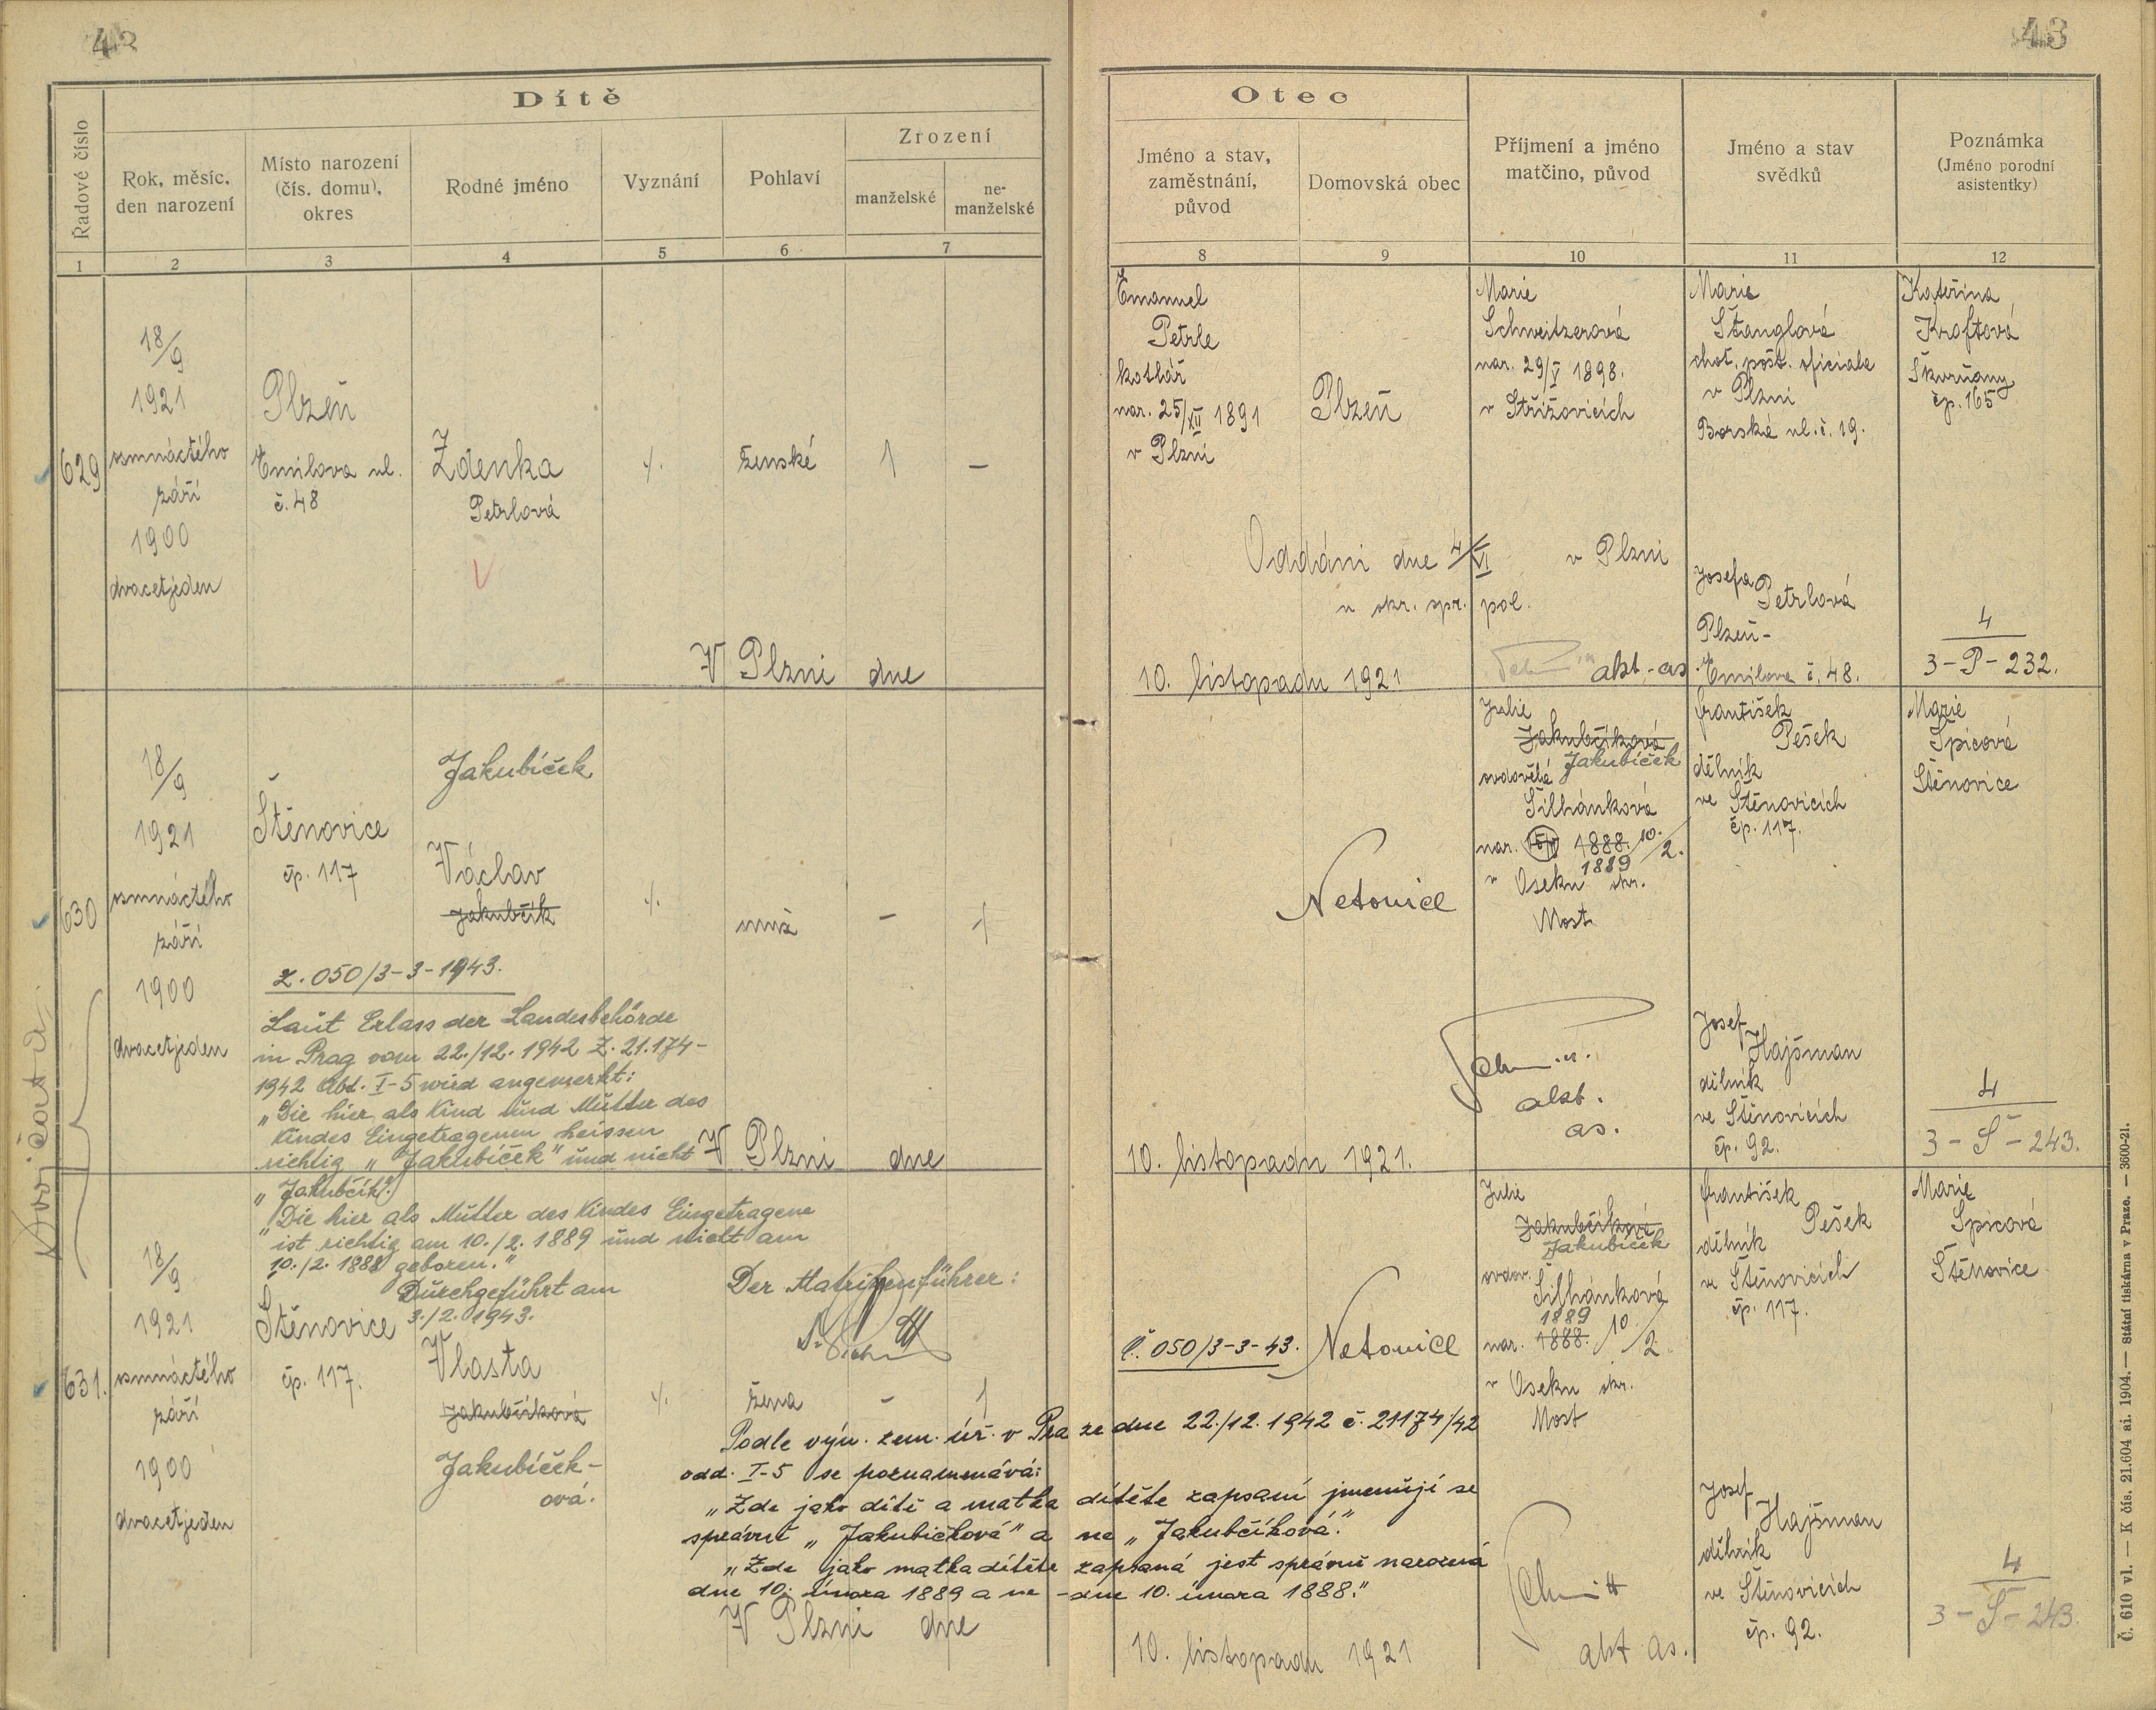 42
Dítě
Řadové číslo
Rok, měsíc, den narození
Místo narození (čís. domu), okres
Rodné jméno
Vyznání
Pohlaví
Zrození
manželské
ne-manželské
1
2
3
4
5
6
7
629
18/9
1921
osmnáctého
září
1900
dvacetjeden
Plzeň
Emilova ul.
č. 48
Zdenka
Petrlová
ženské
1
–
V Plzni dne
630
18/9
1921
osmnáctého
září
1900
dvacetjeden
Štěnovice
čp. 117
Jakubíček
Václav
Jakubčík
muž
–
1
z. 050/3-3-1943.
Laut Erlass der Landesbehörde
in Prag vom 22./12. 1942 Z. 21.174-
1942 Abt. I-5 wird angemerkt:
„Die hier als Kind und Mutter des
Kindes Eingetragenen heissen
richtig „Jakubíček" und nicht
„Jakubčík".
„Die hier als Mutter des Kindes Eingetragene
ist richtig am 10./2. 1889 und nicht am
10./2. 1888 geboren."
Durchgeführt am
3./2. 1943.
Der Matrikenführer:
V Plzni dne
Dvojčata
631.
18/9
1921
osmnáctého
září
1900
dvacetjeden
Štěnovice
čp. 117.
Vlasta
Jakubčíková
Jakubíček-
ová.
žena
–
1
V Plzni dne
43
Otec
Jméno a stav, zaměstnání, původ
Domovská obec
Příjmení a jméno matčino, původ
Jméno a stav svědků
Poznámka
(Jméno porodní asistentky)
8
9
10
11
12
Emanuel
Petrle
kotlář
nar. 25/XII 1891
v Plzni
Plzeň
Marie
Schweitzerová
nar. 29/V 1898.
v Střížovicích
Marie
Štanglová
choť. pošt. oficiala
v Plzni
Borská ul. č. 19.
Kateřina
Kroftová
Škvrňany
čp. 165
Oddáni dne 4/VI v Plzni
u okr. spr. pol.
Josefa
Petrlová
Plzeň-
Emilova č. 48.
4
3-P-232.
10. listopadu 1921
akt.-as.
Julie
Jakubčíková
Jakubíček
ovdovělá
Šilhánková
nar. 1888. 10./2.
1889
v Oseku okr.
Most
Netonice
František
Pešek
dělník
ve Štěnovicích
čp. 117.
Marie
Špicová
Štěnovice
akt.
as.
Josef
Hajšman
dělník
ve Štěnovicích
čp. 92.
4
3-S-243.
10. listopadu 1921.
Julie
Jakubčíková
Jakubíček
ovdov.
Šilhánková
1889
nar. 1888. 10/2.
v Oseku okr.
Most
Č. 050/3-3-43.
Netonice
František
Pešek
dělník
ve Štěnovicích
čp. 117.
Marie
Špicová
Štěnovice
Podle výn. zem. úř. v Praze dne 22./12. 1942 č. 21174/42
odd. I-5 se poznamenává:
„Zde jako dítě a matka dítěte zapsaní jmenují se
správně „Jakubíčková" a ne „Jakubčíková."
„Zde jako matka dítěte zapsaná jest správně narozená
dne 10. února 1889 a ne - dne 10. února 1888."
akt as.
Josef
Hajšman
dělník
ve Štěnovicích
čp. 92.
4
3-S-243.
10. listopadu 1921
Č. 610 vl. — K čís. 21.604 ai. 1904. — Státní tiskárna v Praze. — 3600-21.